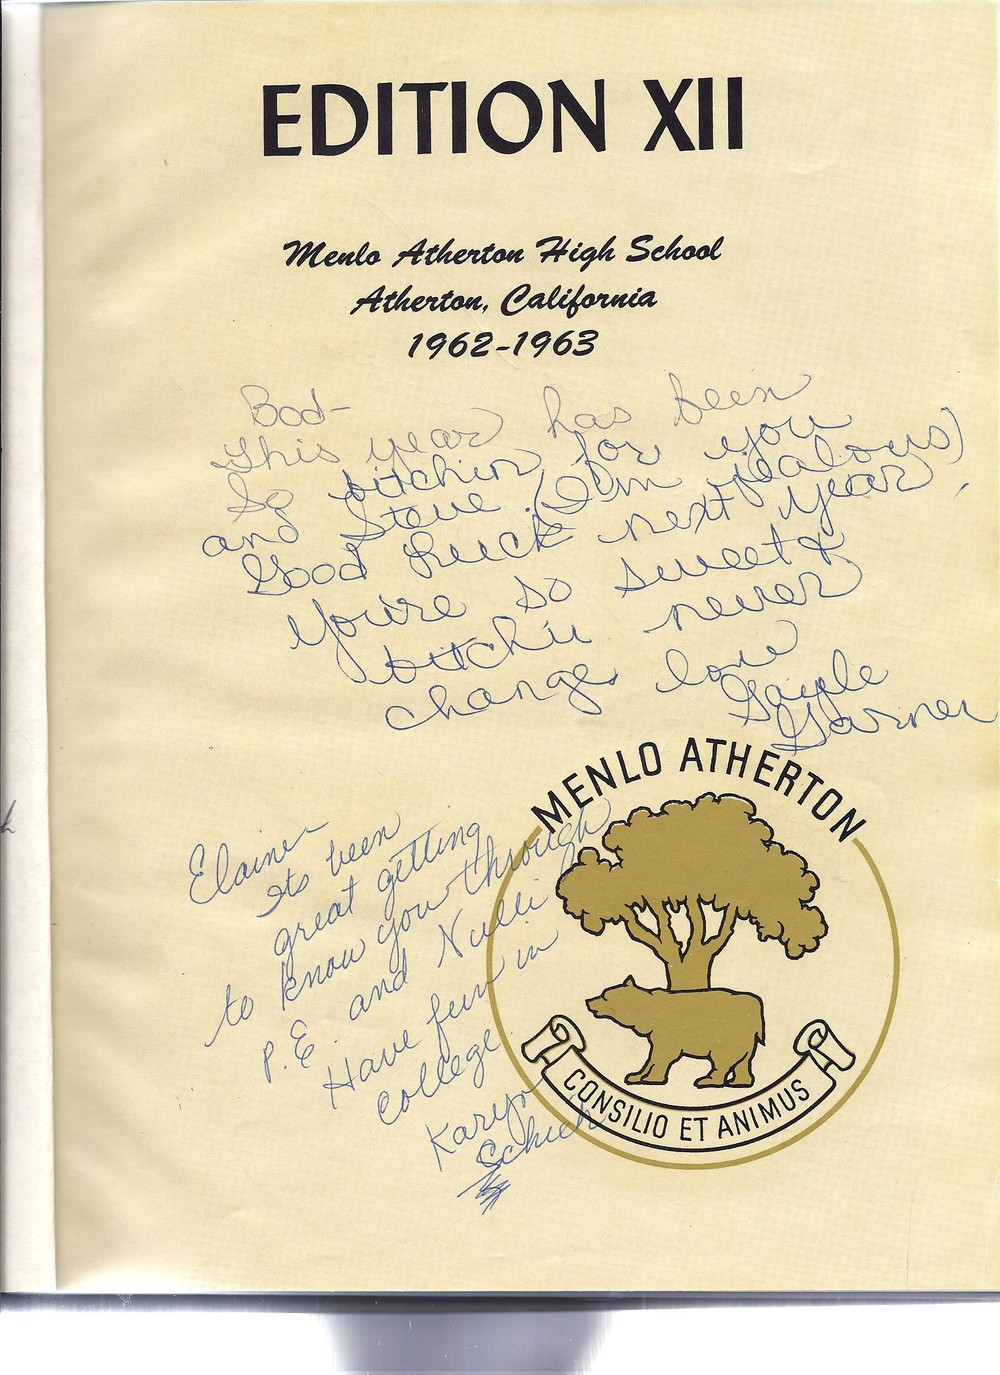 EDITION XII
Menlo Atherton High School
Atherton, California
1962-1963
Bod-
This year has been
So bitchin for you
and Steve (I'm jealous)
Good Luck next year,
You're so sweet &
bitchii never
change. love
Gayle
Garner
MENLO ATHERTON
Elaine
Its been
great getting
to know you through
P.E. and
Have fun in
College
Karyn
CONSILIO ET ANIMUS